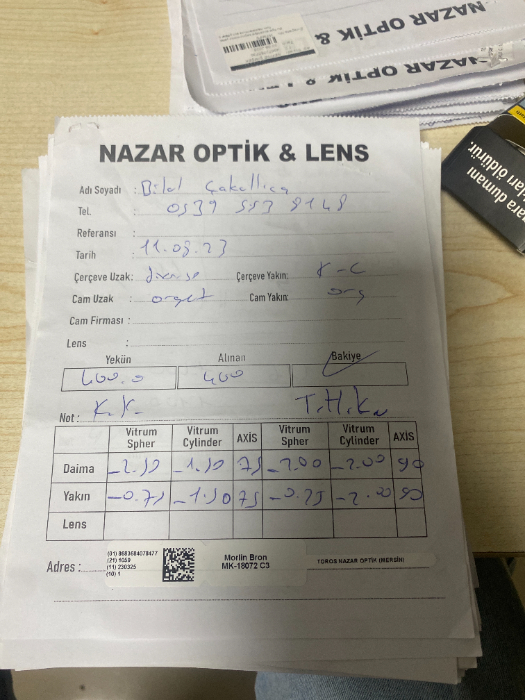 NAZAR OPTİK &
NAZAR OPTİK &
NAZAR OPTİK & LENS
Adı Soyadı : Bilal
Tel. : 0537 553 8148
Referansı :
Tarih : 11.08.23
Çerçeve Uzak: Çerçeve Yakın: K-C
Cam Uzak : Cam Yakın: org
Cam Firması :
Lens :
Yekün Alınan Bakiye
400.0 400
Not : K.K. T.H.K.
Vitrum Spher Vitrum Cylinder AXİS Vitrum Spher Vitrum Cylinder AXİS
Daima -2.50 -1.50 75 -2.00 -2.00 90
Yakın -0.75 -1.50 75 -0.25 -2.00 90
Lens
Adres :
(01) 8683684078477
(21) 1059
(11) 230325
(10) 1
Morlin Bron
MK-18072 C3
TOROS NAZAR OPTİK (MERSİN)
ara dumanı
ları öldürür.